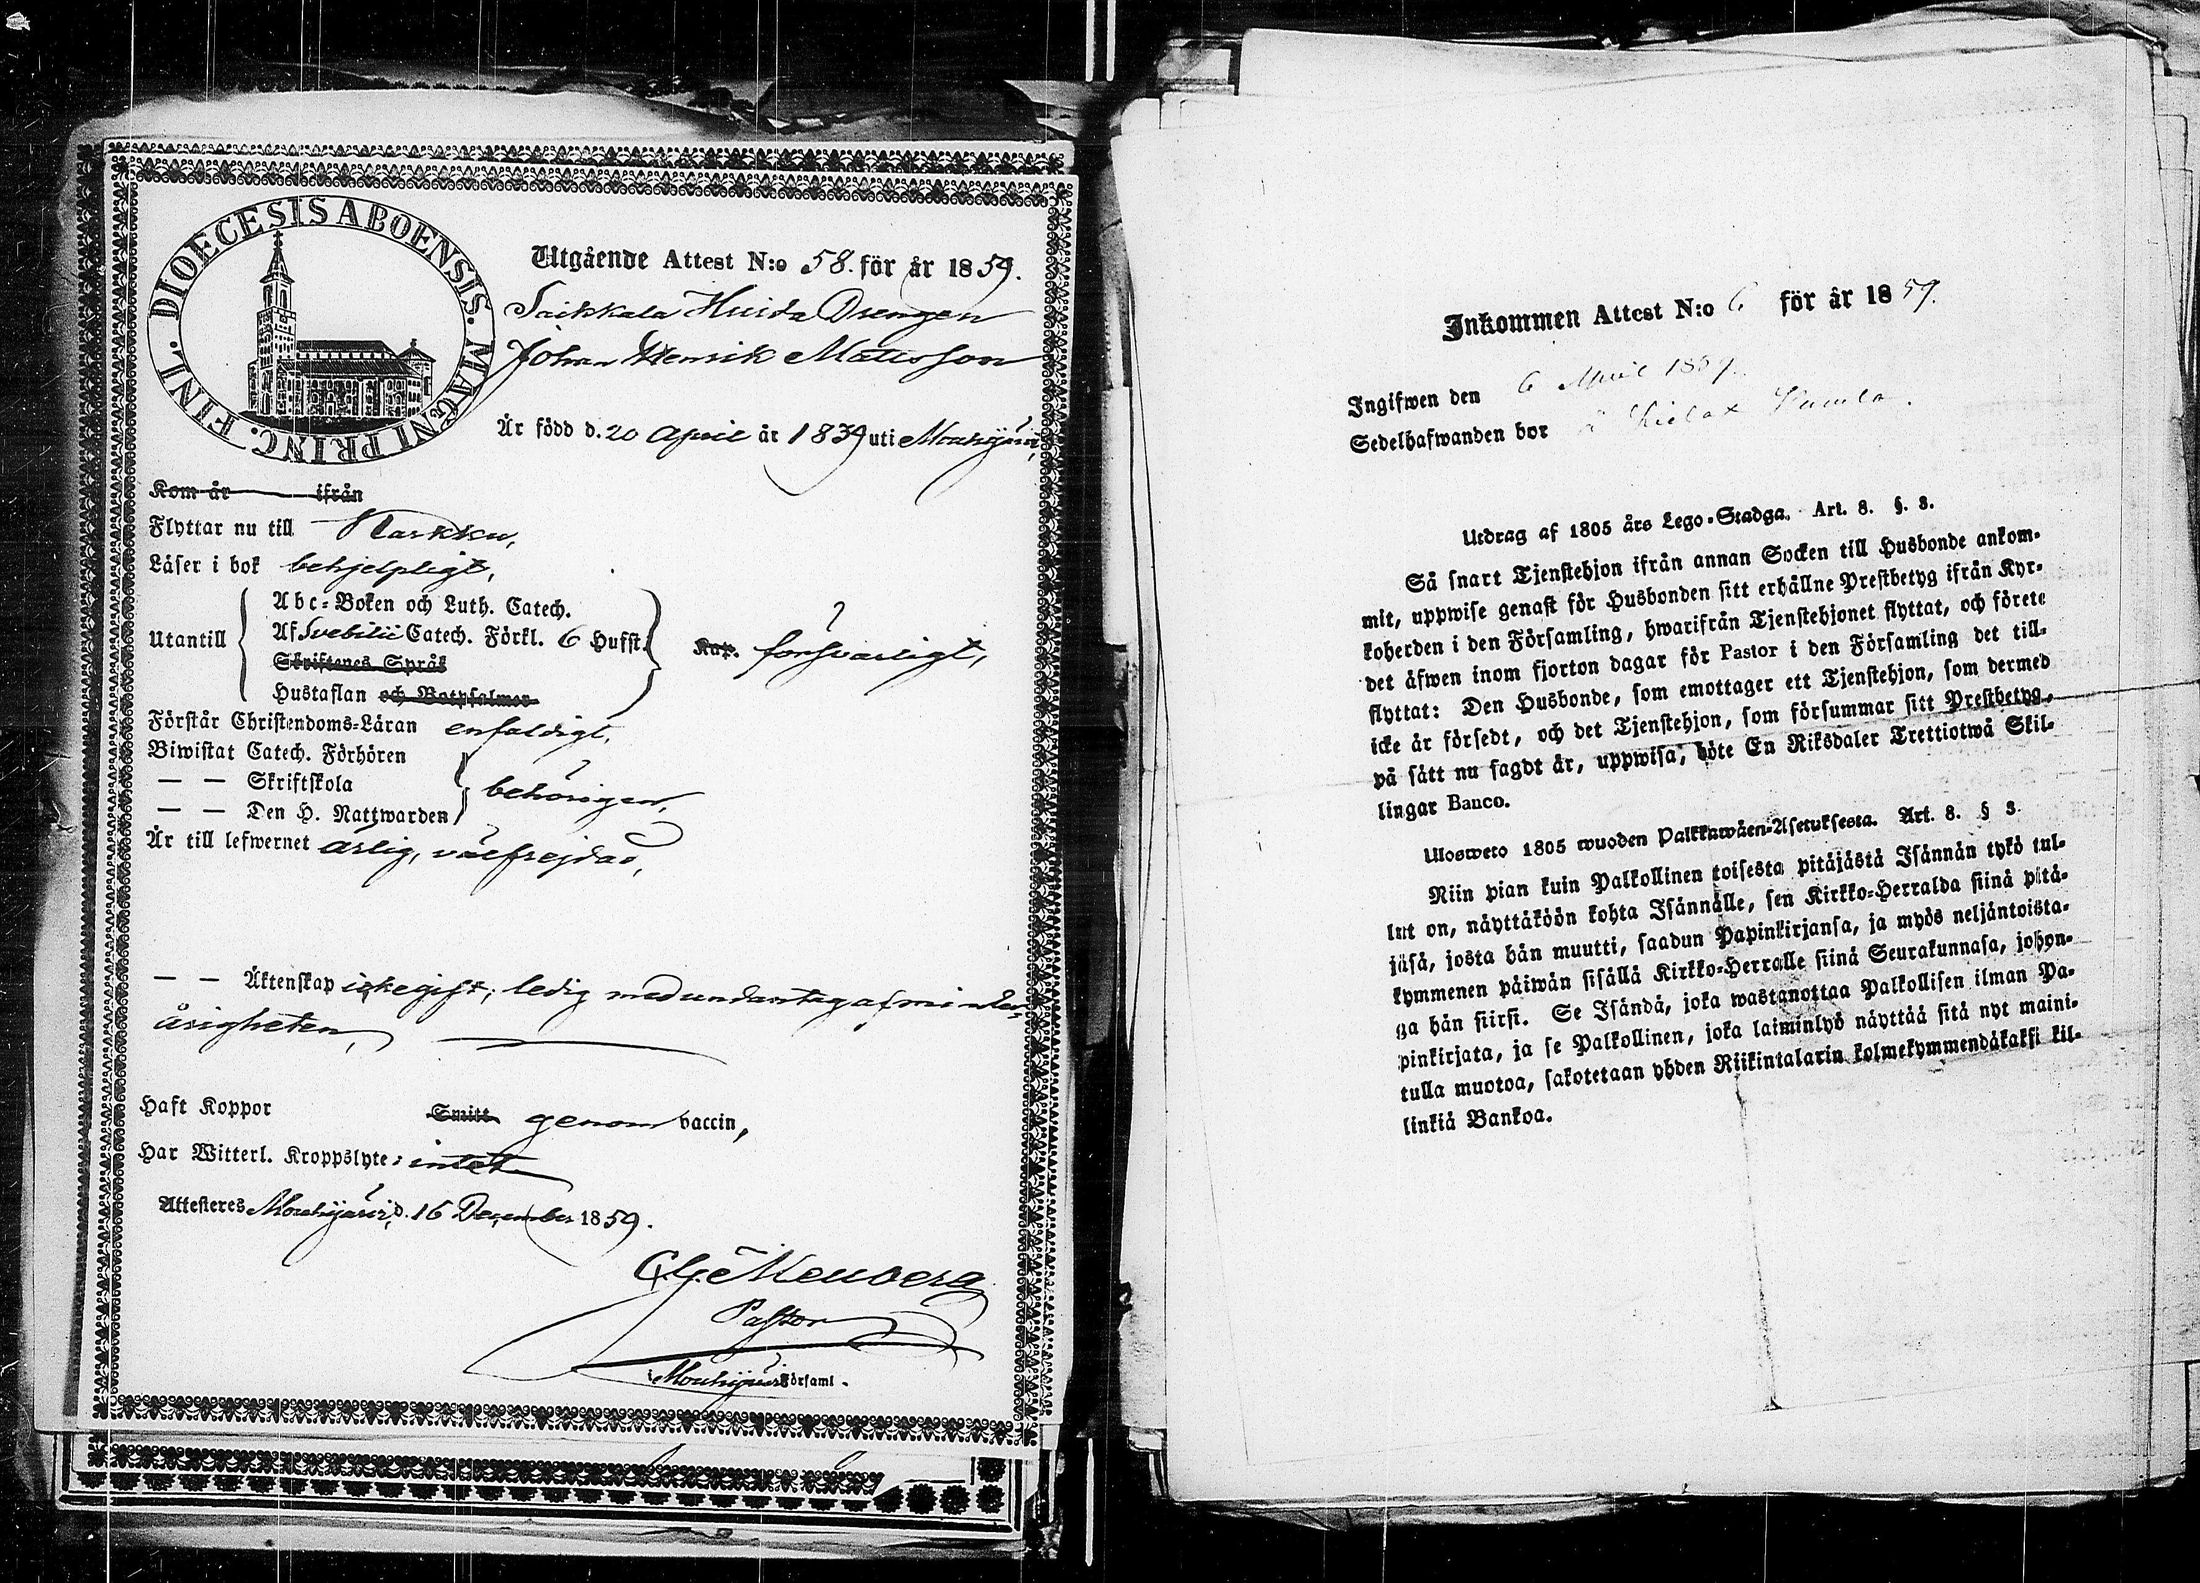 DIOECESIS ABOENSIS. MAGNI PRINC. FINL.
Utgående Attest N:o 58. för år 1859.
Saikkala Huida Drengen
Johan Henrik Mattsson
Är född d. 20 April år 1839 uti Mouhijärvi,
Kom år ifrån
Flyttar nu till Karkku,
Läser i bok behjelpligt,
Utantill
Abc-Boken och Luth. Catech.
Af Svebilii Catech. Förkl. 6 Hufst.
Skriftenes Språk
Hustaflan och Botpsalmer
Kap. försvarligt,
Förstår Christendoms-Läran enfaldigt,
Biwistat Catech. Förhören
— — Skriftskola
— — Den H. Nattwarden
behörigen,
Är till lefwernet ärlig, välfrejdad,
— — Äktenskap icke gift; ledig med undantag af minder-
årigheten,
Haft Koppor Smitt genom vaccin,
Har Witterl. Kroppslyte: intet
Attesteres Mouhijärvi, d. 16 December 1859.
Pastor
i Mouhijärvi Församl.
Inkommen Attest N:o 6 för år 1859.
Ingifwen den 6 April 1859.
Sedelhafwanden bor å
Utdrag af 1805 års Lego-Stadga. Art. 8. §. 3.
Så snart Tjenstehjon ifrån annan Socken till Husbonde ankom-
mit, uppwise genast för Husbonden sitt erhållne Prestbetyg ifrån Kyr-
koherden i den Församling, hwarifrån Tjenstehjonet flyttat, och förete
det äfwen inom fjorton dagar för Pastor i den Församling det till-
flyttat: Den Husbonde, som emottager ett Tjenstehjon, som dermed
icke är försedt, och det Tjenstehjon, som försummar sitt Prestbetyg,
på sätt nu sagdt är, uppwisa, böte En Riksdaler Trettiotwå Skil-
lingar Banco.
Ulosweto 1805 wuoden Palkkawäen-Asetuksesta. Art. 8. § 3.
Niin pian kuin Palkollinen toisesta pitäjästä Isännän tykö tul-
lut on, näyttäköön kohta Isännälle, sen Kirkko-Herralda siinä pitä-
jäsä, josta hän muutti, saadun Papinkirjansa, ja myös neljäntoista-
kymmenen päiwän sisällä Kirkko-Herralle siinä Seurakunnasa, johon-
ga hän siirsi. Se Isändä, joka wastanottaa Palkollisen ilman Pa-
pinkirjata, ja se Palkollinen, joka laiminlyö näyttää sitä nyt maini-
tulla muotoa, sakotetaan yhden Riikintalarin kolmekymmendäkaksi kil-
linkiä Bankoa.